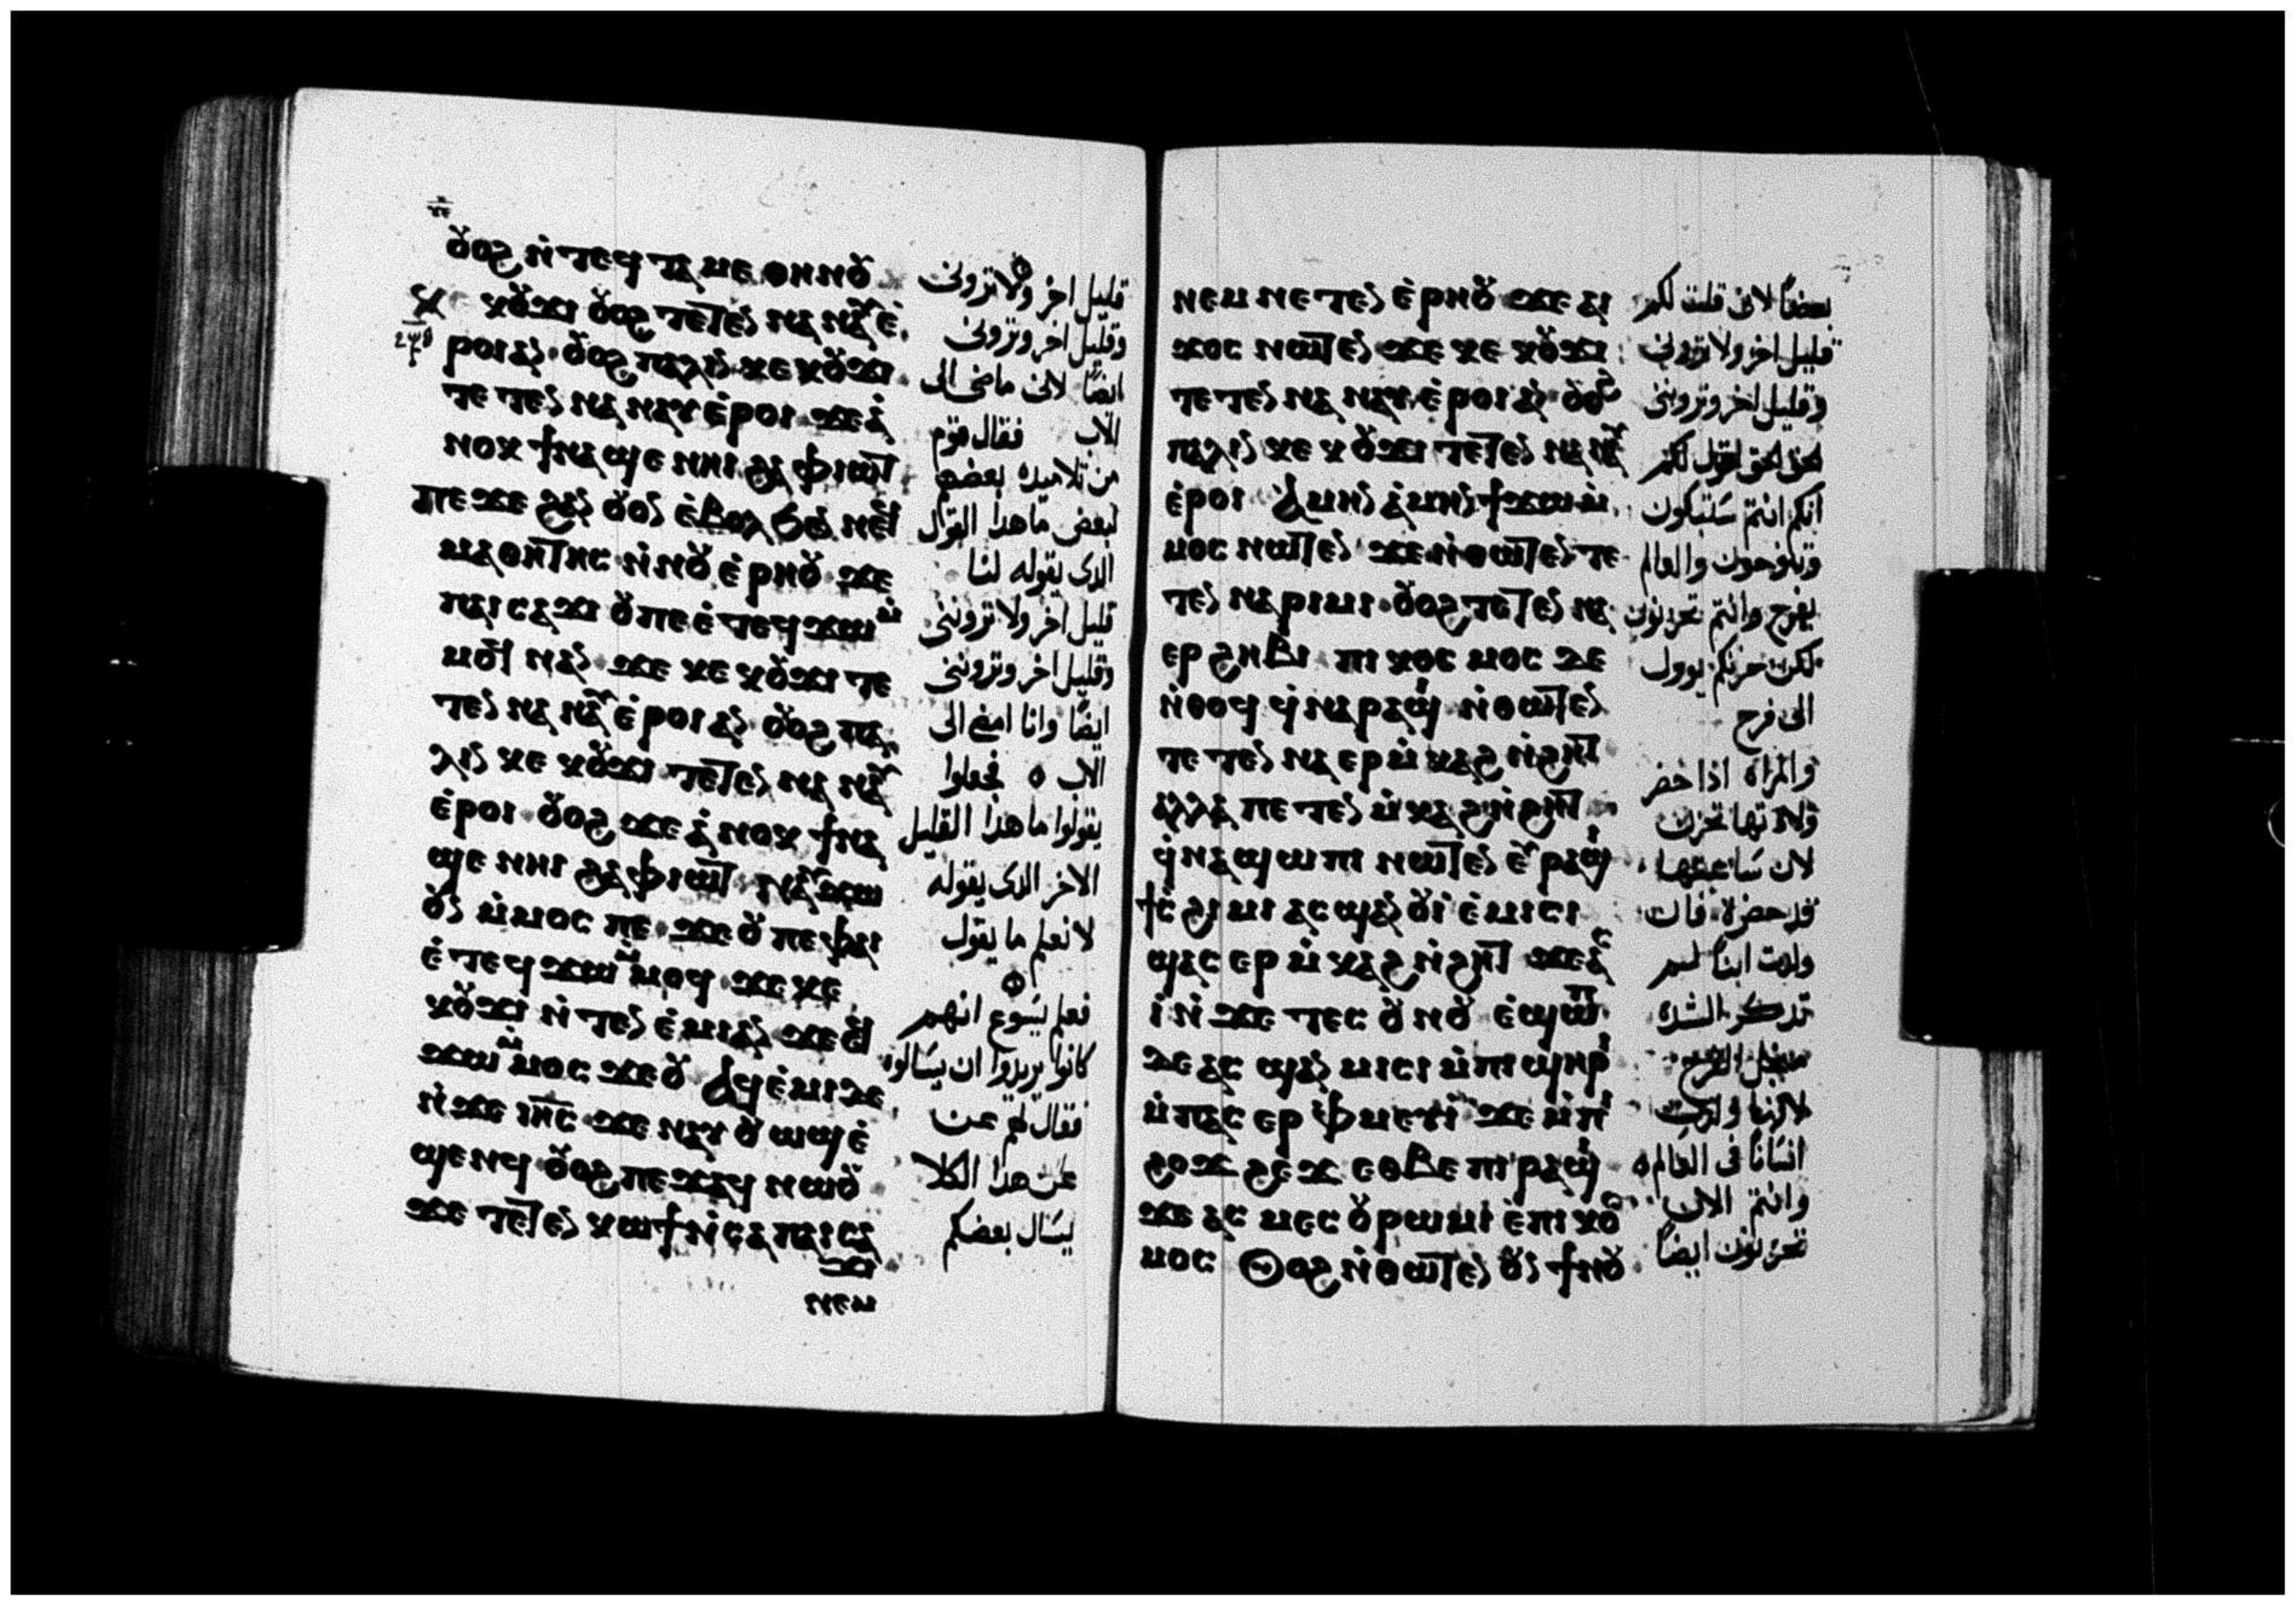 ⲟⲩⲟϩ ⲛ̇ⲧⲉϥ ⲧⲁⲙⲉ ⲑⲏⲛⲟⲩ
ⲕⲟⲩϫⲓ ⲟⲩⲟϩ ⲧⲉⲧⲉⲛ ⲛⲁ ⲛⲁⲩ ⲉ̇
ⲣⲟⲓ ⲁⲛ ⲟⲩⲟϩ ⲡⲁⲗⲓⲛ ⲕⲉ ⲕⲟⲩϫⲓ
ⲧⲉ ⲧⲉⲛ ⲛⲁ ⲛⲁⲩ ⲉ̇ⲣⲟⲓ ϫⲉ ⲁ̇
ⲛⲟⲕ ϯⲛⲁ ϣⲉ ⲛⲏⲓ ϩⲁ ⲫⲓⲱⲧ
ⲡⲉϫⲉ ϩⲁⲛ ⲟⲩⲟⲛ ⲉ̇ⲃⲟⲗ ϧⲉⲛ ⲛⲉϥ
ⲙⲁⲑⲏⲧⲏⲥ ⲛ̇ⲛⲟⲩ ⲉ̇ⲣⲏⲟⲩ ϫⲉ
ⲡⲁⲓ ⲥⲁϫⲓ ⲟⲩ ⲡⲉ ⲉ̇ⲧⲉϥ ϫⲱ ⲙ̇
ⲙⲟϥ ⲛⲁⲛ ϫⲉ ⲕⲉ ⲕⲟⲩϫⲓ ⲧⲉ
ⲧⲉⲛ ⲛⲁ ⲛⲁⲩ ⲉ̇ⲣⲟⲓ ⲁⲛ ⲟⲩⲟϩ ⲡⲁ
ⲗⲓⲛ ⲕⲉ ⲕⲟⲩϫⲓ ⲧⲉⲧⲉⲛ ⲛⲁ ⲛⲁⲩ
ⲉ̇ⲣⲟⲓ ⲟⲩⲟϩ ϫⲉ ⲁ̇ⲛⲟⲕ ϯⲛⲁ
ϣⲉ ⲛⲏⲓ ϩⲁ ⲫⲓⲱⲧ ⲛⲁⲩ ϫⲱ
ⲟⲩⲛ ⲙ̇ⲙⲟⲥ ⲡⲉ ϫⲉ ⲟⲩ ⲡⲉ ⲫⲁⲓ
ⲉ̇ⲧⲉϥ ϫⲱ ⲙ̇ⲙⲟϥ ϫⲉ ⲕⲉ
ⲕⲟⲩϫⲓ ⲛ̇ⲧⲉⲛ ⲉ̇ⲙⲓ ⲁⲛ ϫⲉ ⲉϥ
ϫⲱ ⲙ̇ⲙⲟⲥ ϫⲉ ⲟⲩ ⲁϥ ⲉ̇ⲙⲓ ϫⲉ
ⲛ̇ϫⲉ ⲓⲏⲥ ϫⲉ ⲛⲁⲩ ⲟⲩⲱϣ ⲉ̇
ϣⲉⲛϥ ⲟⲩⲟϩ ⲡⲉϫⲁϥ ⲛⲱⲟⲩ
ϫⲉ ⲧⲉⲧⲉⲛ ⲕⲱϯ ⲛ̇ⲥⲁ ⲡⲁⲓ ⲥⲁ
ϫⲓ
ⲛⲉⲙ
قليل اخر ولا تروني
وقليل اخر وتروني
ايضًا لاني ماضي الى
الاب فقال قوم
من تلاميده بعضهم
لبعض ما هدا القول
الدى يقوله لنا
قليل اخر ولا تروننى
وقليل اخر وتروننى
ايضًا وانا امضي الى
الاب فجعلوا
يقولوا ما هدا القليل
الاخر الدى يقوله
لا نعلم ما يقول
فعلم يسوع انهم
كانوا يريدوا ان يسالوه
فقال لهم عن
عن هدا الكلا
يسال بعضكم
ⲛⲉⲙ ⲛⲉⲧⲉⲛ ⲉ̇ⲣⲏⲟⲩ ϫⲉ ⲁⲓ
ϫⲟⲥ ⲛⲱⲧⲉⲛ ϫⲉ ⲕⲉ ⲕⲟⲩϫⲓ
ⲧⲉⲧⲉⲛ ⲛⲁ ⲛⲁⲩ ⲉ̇ⲣⲟⲓ ⲁⲛ ⲟⲩⲟϩ
ⲡⲁⲗⲓⲛ ⲕⲉ ⲕⲟⲩϫⲓ ⲧⲉⲧⲉⲛ ⲛⲁ ⲛⲁⲩ
ⲉ̇ⲣⲟⲓ ⲁ̇ⲙⲏⲛ ⲁ̇ⲙⲏⲛ ϯϫⲱ ⲙ̇
ⲙⲟⲥ ⲛⲱⲧⲉⲛ ϫⲉ ⲛ̇ⲑⲱⲧⲉⲛ ⲧⲉ
ⲧⲉⲛ ⲛⲁ ⲣⲓⲙⲓ ⲟⲩⲟϩ ⲧⲉⲧⲉⲛ ⲛⲁ
ⲉⲣ ϩⲏⲃⲓ ⲡⲓ ⲕⲟⲥⲙⲟⲥ ⲇⲉ
ⲛ̇ⲑⲟϥ ϥ̇ⲛⲁ ⲣⲁϣⲓ ⲛ̇ⲑⲱⲧⲉⲛ
ⲧⲉⲧⲉⲛ ⲛⲁ ⲉⲣ ⲙ̇ⲕⲁϩ ⲛ̇ϩⲏⲧ
ⲁⲗⲗⲁ ⲡⲉⲧⲉⲛ ⲙ̇ⲕⲁϩ ⲛ̇ϩⲏⲧ
ϥ̇ⲛⲁ ϣⲱⲡⲓ ⲛⲱⲧⲉⲛ ⲉⲩⲣⲁϣⲓ
ϯⲥ̇ϩⲓⲙⲓ ⲁⲥ ϣⲁⲛ ⲟⲩⲓ̇ ⲉ̇ⲙⲓⲥⲓ
ϣⲁⲥ ⲉⲣ ⲙ̇ⲕⲁϩ ⲛ̇ϩⲏⲧ ϫⲉ ⲁⲥ
ⲓ̇ ⲛ̇ϫⲉ ⲧⲉⲥ ⲟⲩⲛⲟⲩ ⲉ̇ϣⲱⲡ
ⲇⲉ ⲁⲥ ϣⲁⲛ ⲙⲓⲥⲓ ⲙ̇ⲡⲓ ϣⲏⲣⲓ
ⲙ̇ⲡⲁⲥ ⲉⲣ ⲫⲙⲉⲩⲓ̇ ϫⲉ ⲙ̇ⲡⲓ
ϩⲟϫϩⲉϫ ⲉⲑⲃⲉ ⲡⲓ ⲣⲁϣⲓ
ϫⲉ ⲁⲥ ⲙⲉⲥ ⲟⲩⲣⲱⲙⲓ ⲉ̇ⲡⲓ ⲕⲟⲥ
ⲙⲟⲥ ⲟⲩⲟϩ ⲛ̇ⲑⲱⲧⲉⲛ ⲟⲩⲛ ϯⲛⲟⲩ
بعضًا لانى قلت لكم
قليل اخر ولا تروني
وقليل اخر وتروننى
الحق الحق اقول لكم
انكم انتم ستبكون
وتنوحون والعالم
يفرح وانتم تحزنون
لكن حزنكم يوول
الى فرح
والمراة اذا حضر
ولادتها تحزن
لان ساعتها
قد حضرة فان
ولدت ابنًا لم
تدكر الشده
من اجل الفرح
لانها ولدت
انسانًا في العالم
وانتم الان
تحزنون ايضًا